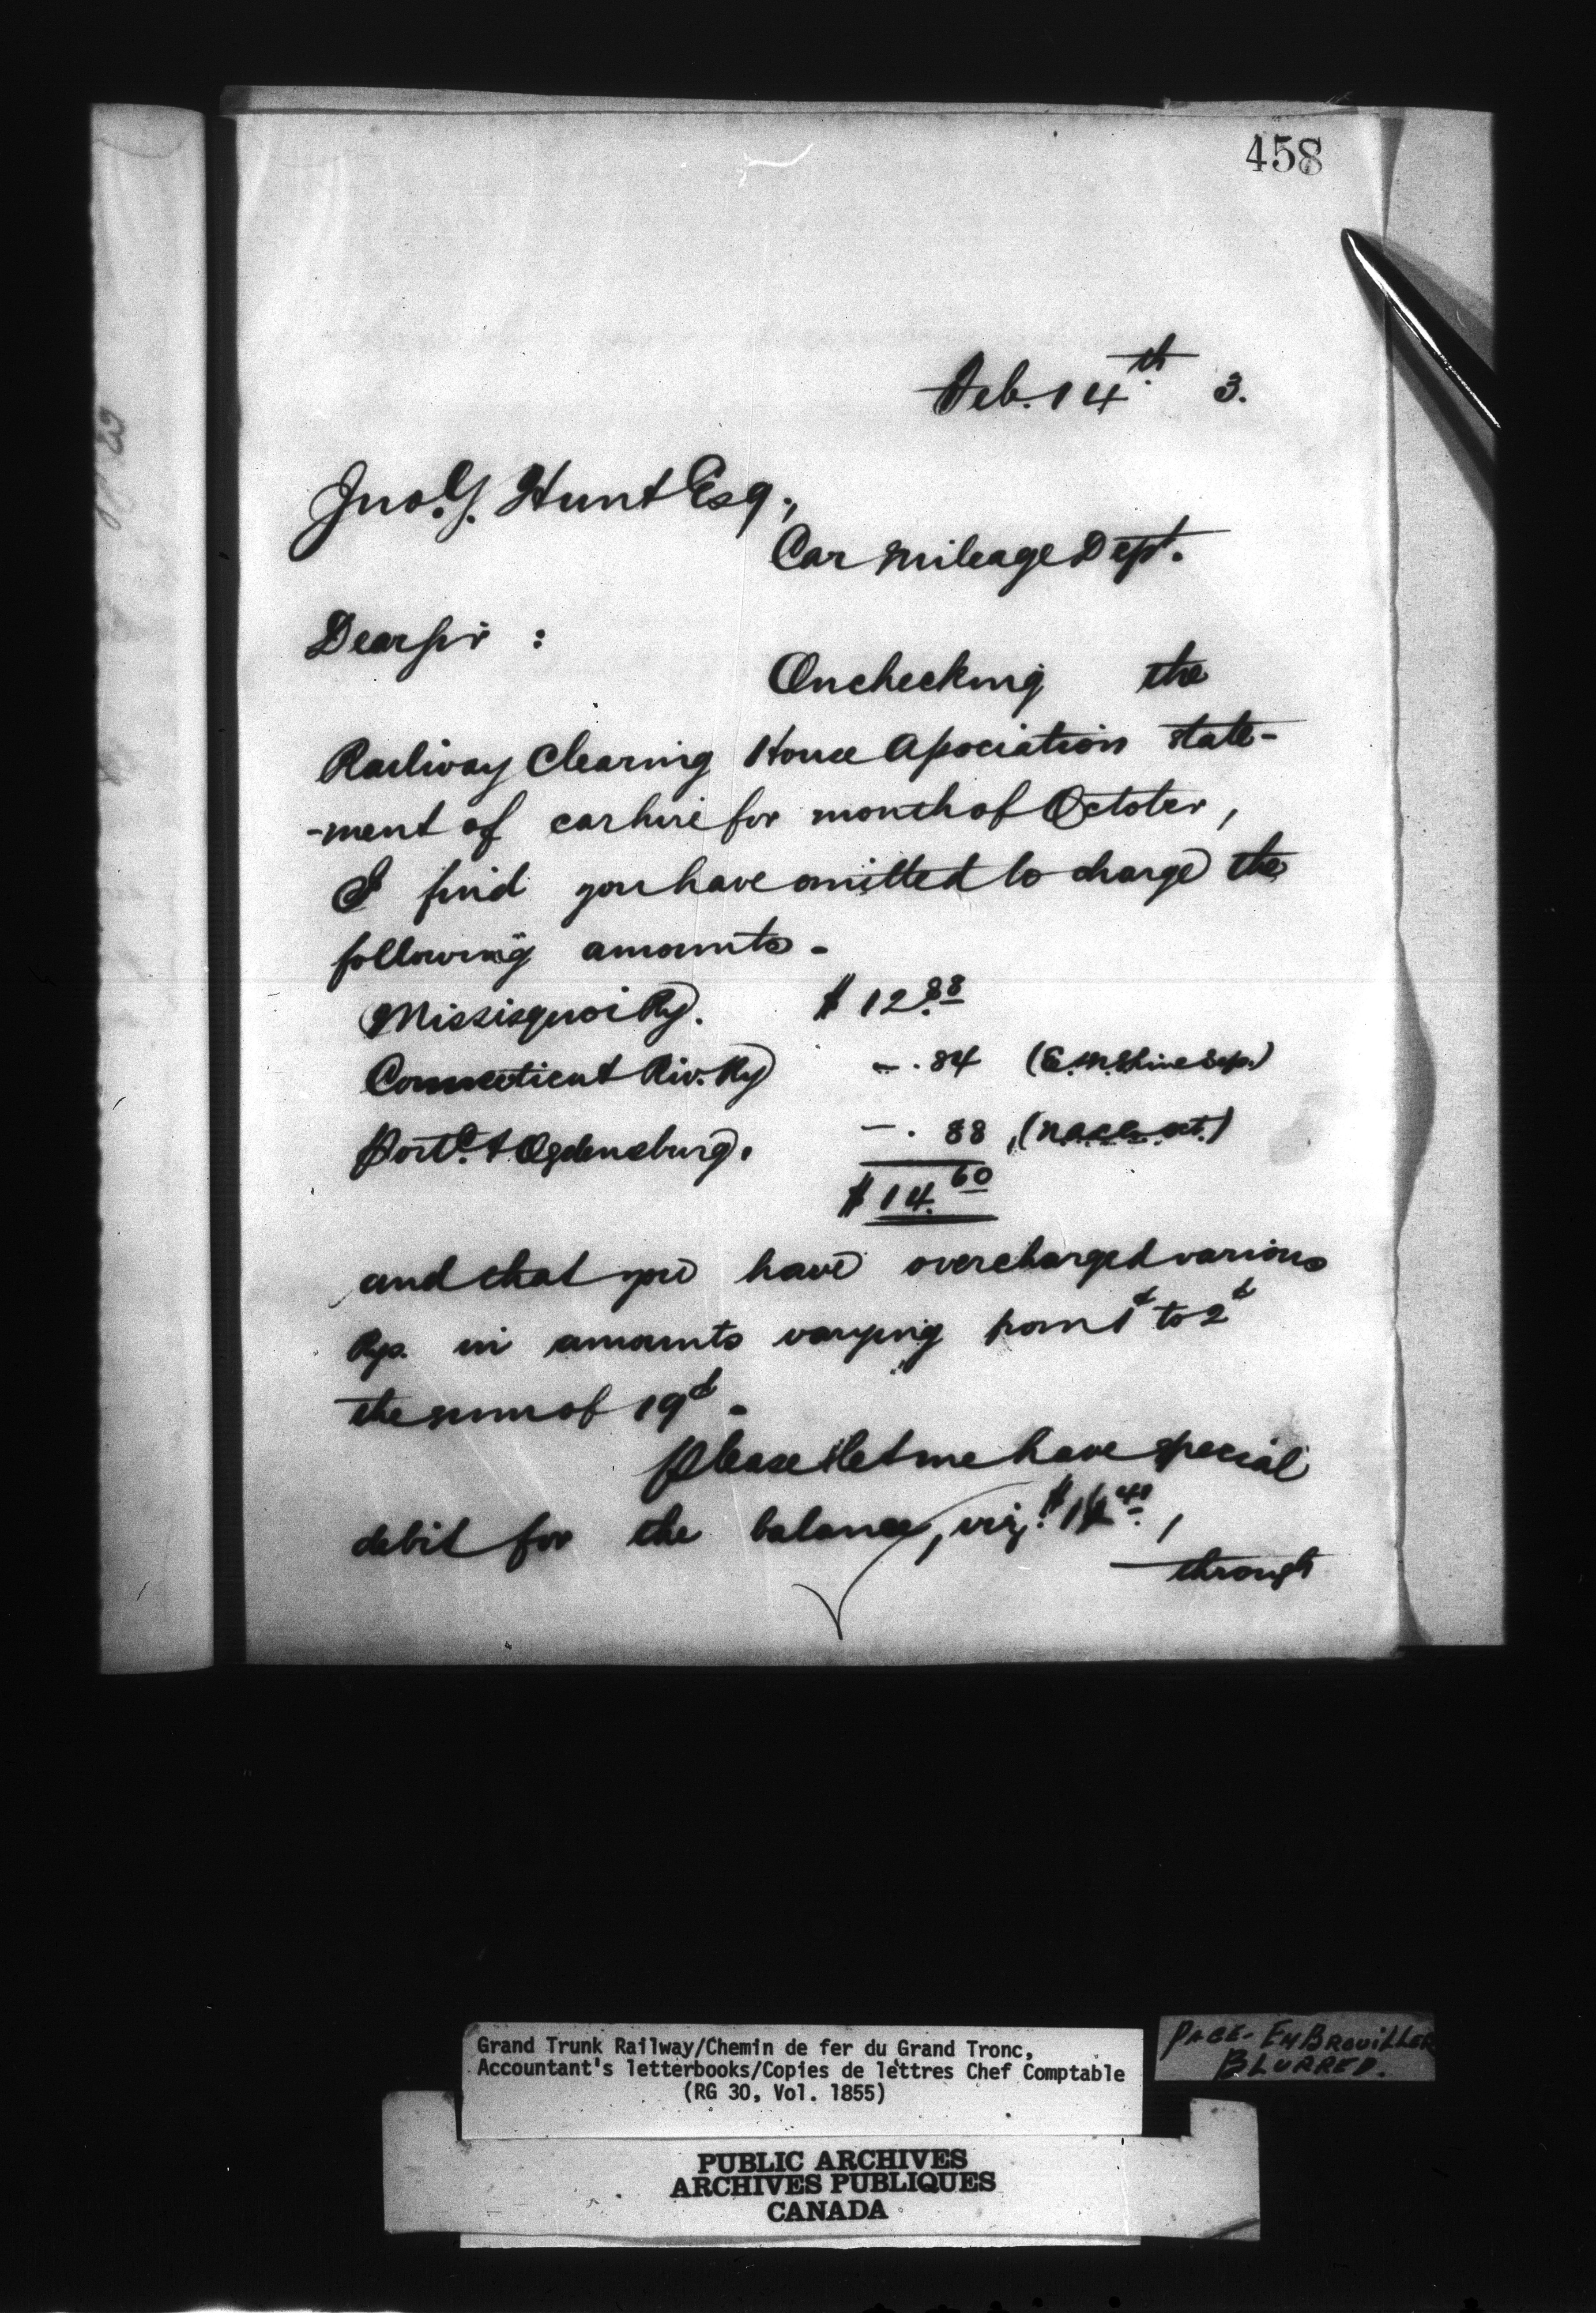 458
Feb. 14th 3.
Jno. Y. Hunt Esq.,
Car Mileage Dept.
Dear Sir :
On checking the
Railway Clearing House Association state-
-ment of car hire for month of October,
I find you have omitted to charge the
following amounts -
Missisquoi Ry. $ 12.88
Connecticut Riv. Ry - . 84
Portd. & Ogdensburg. - . 88
$ 14.60
and that you have overcharged various
Rys. in amounts varying from 1¢ to 2¢
the sum of 19¢.
Please let me have special
debit for the balance, viz. $14.41,
through
Grand Trunk Railway/Chemin de fer du Grand Tronc,
Accountant's letterbooks/Copies de lettres Chef Comptable
(RG 30, Vol. 1855)
PAGE - EMBROUILLER
BLURRED.
PUBLIC ARCHIVES
ARCHIVES PUBLIQUES
CANADA